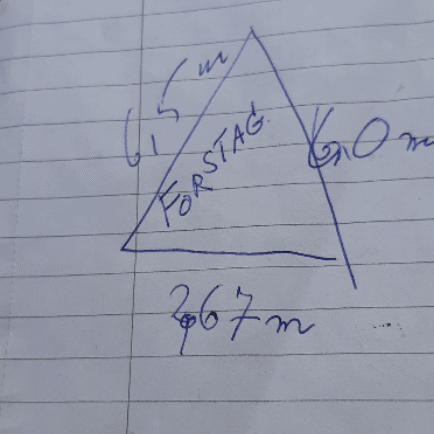 6,5 m
FORSTAG.
6,0 m
2,67 m